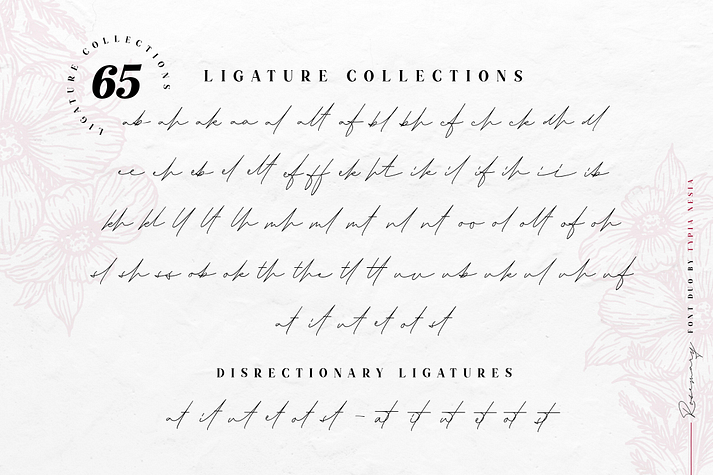 LIGATURE COLLECTIONS
65
LIGATURE COLLECTIONS
ab ah ak aa al alt af bl bh cf ch ck dh dl
ee eh eb el elt ef ff ek ht ik il if ih ii ib
kh kl ll lt lh mh ml mt nl nt oo ol olt of oh
sl sh ss ob ok th the tl tt uu ub uk ul uh uf
at it ut et ot st
DISRECTIONARY LIGATURES
at it ut et ot st - at it ut et ot st
Rosemary FONT DUO BY TYPIA NESIA